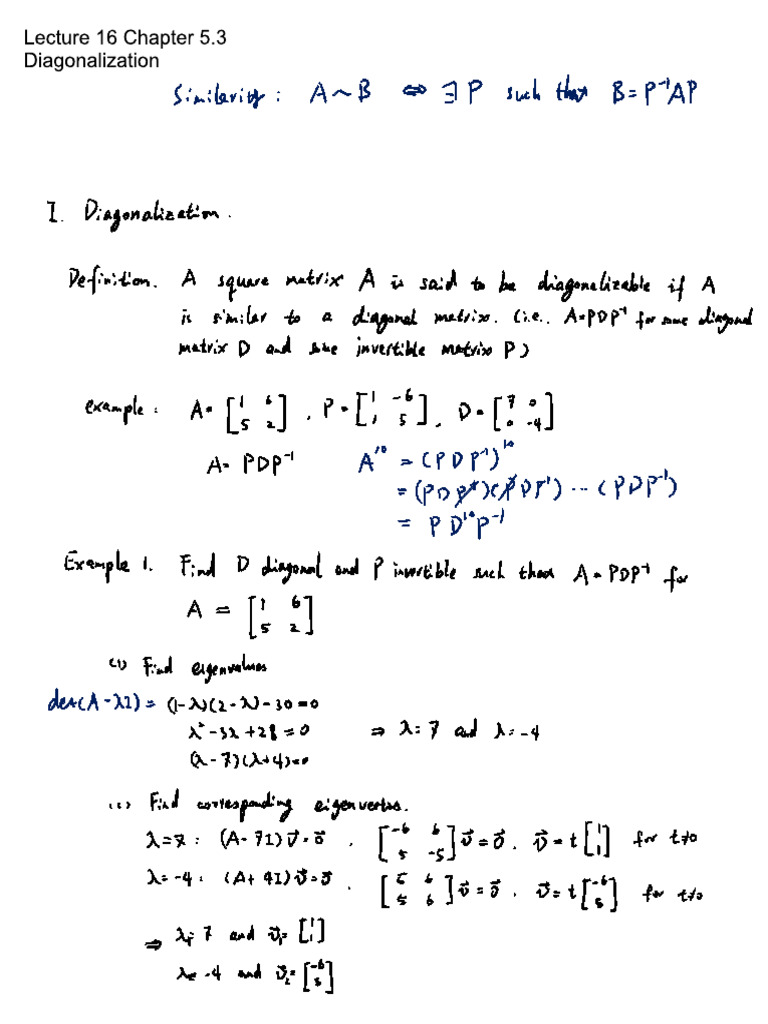 Lecture 16 Chapter 5.3
Diagonalization
Similarity: A ~ B ⇔ ∃ P such that B = P⁻¹AP
I. Diagonalization.
Definition. A square matrix A is said to be diagonalizable if A
is similar to a diagonal matrix. (i.e.. A=PDP⁻¹ for some diagonal
matrix D and some invertible matrix P)
example: A = [1 6; 5 2], P = [1 -6; 1 5], D = [7 0; 0 -4]
A = PDP⁻¹ A¹⁰ = (PDP⁻¹)¹⁰
= (PDP⁻¹)(PDP⁻¹) ... (PDP⁻¹)
= PD¹⁰P⁻¹
Example 1. Find D diagonal and P invertible such that A = PDP⁻¹ for
A = [1 6; 5 2]
(1) Find eigenvalues
det(A-λI) = (1-λ)(2-λ)-30=0
λ²-3λ+28=0 ⇒ λ=7 and λ=-4
(λ-7)(λ+4)=0
(2) Find corresponding eigenvectors.
λ=7: (A-7I)v⃗=0⃗. [-6 6; 5 -5]v⃗=0⃗. v⃗=t[1; 1] for t≠0
λ=-4: (A+4I)v⃗=0⃗. [5 6; 5 6]v⃗=0⃗. v⃗=t[-6; 5] for t≠0
⇒ λ₁=7 and v⃗₁=[1; 1]
λ₂=-4 and v⃗₂=[-6; 5]